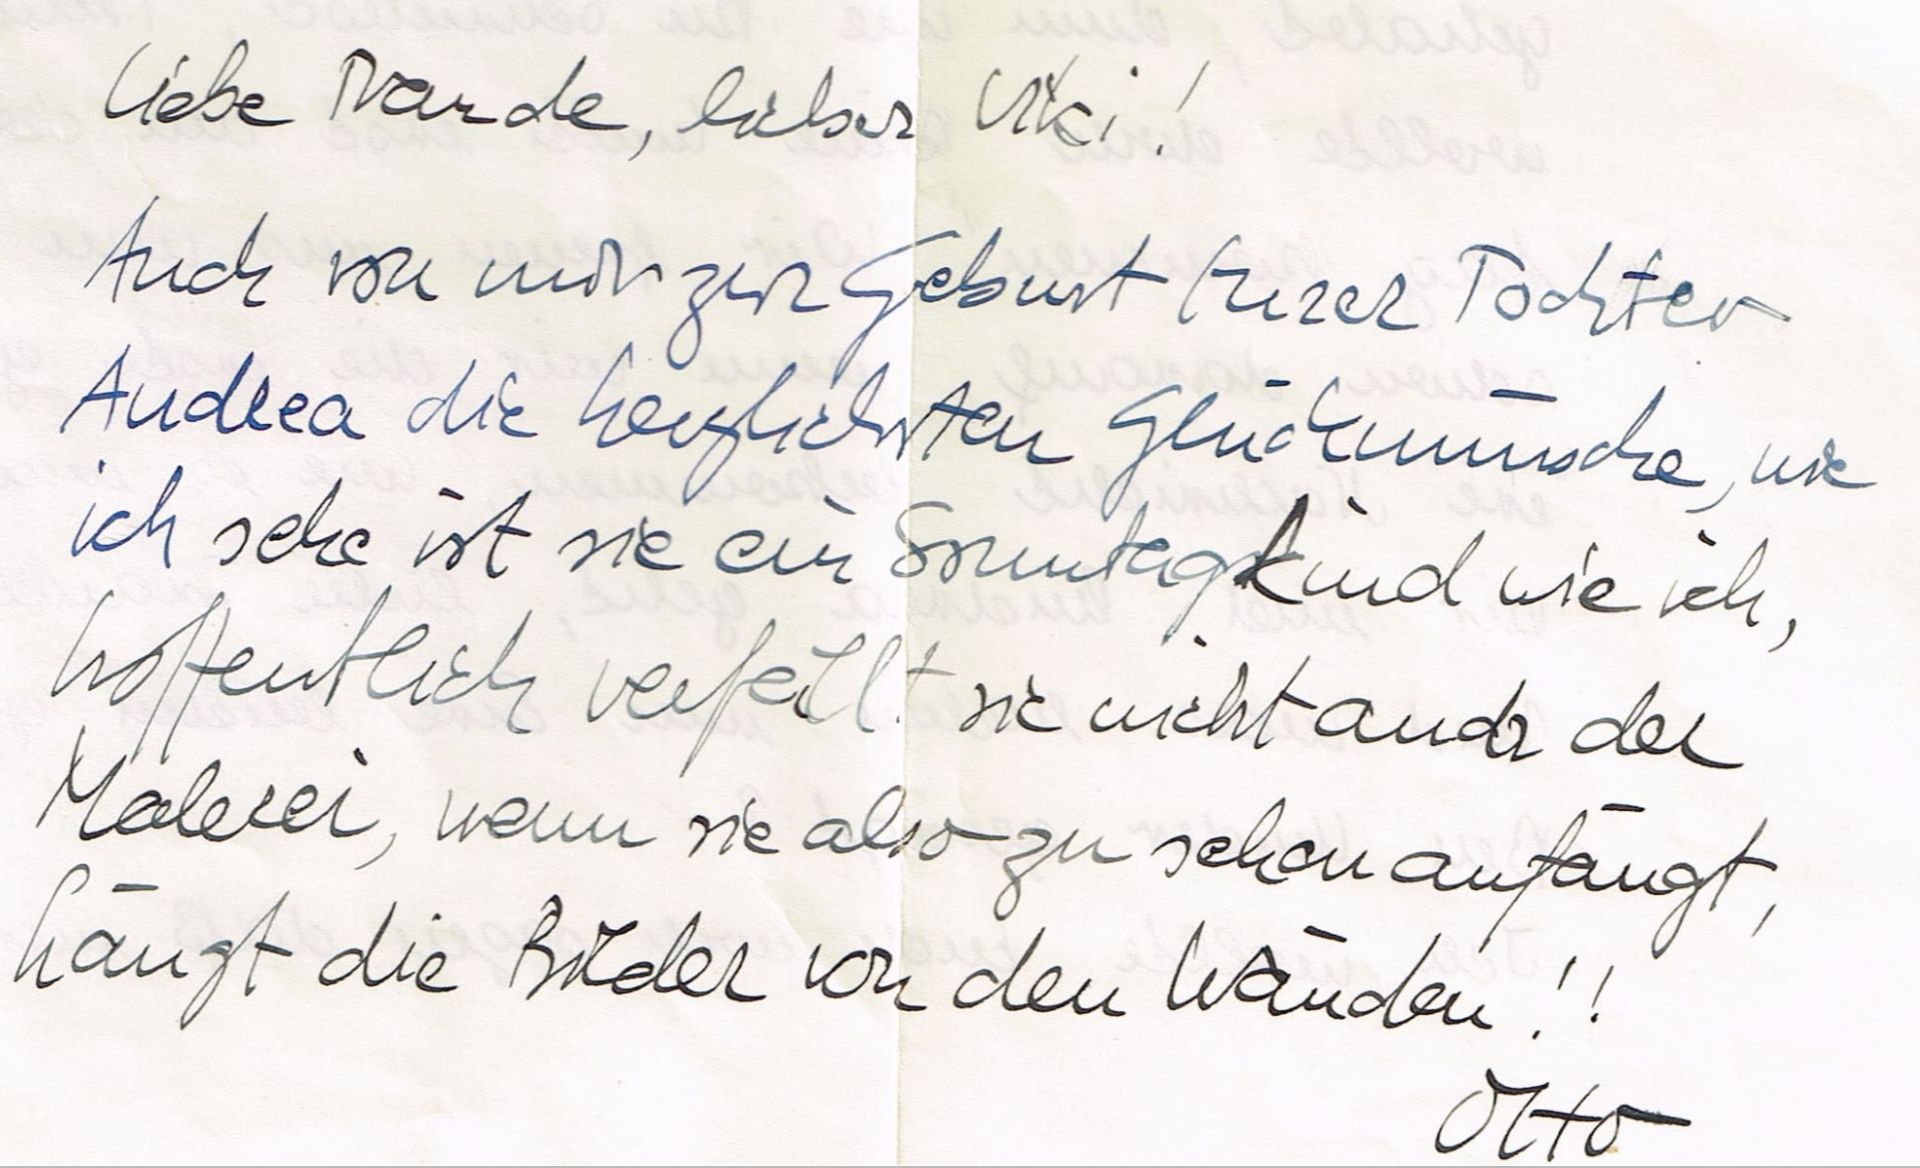 Liebe Traude, lieber Viki!
Auch von mir zur Geburt Eurer Tochter
Andrea die herzlichsten Glückwünsche, wie
ich sehe ist sie ein Sonntagskind wie ich,
hoffentlich verfällt sie nicht auch der
Malerei, wenn sie also zu sehen anfängt,
hängt die Bilder von den Wänden!!
Otto